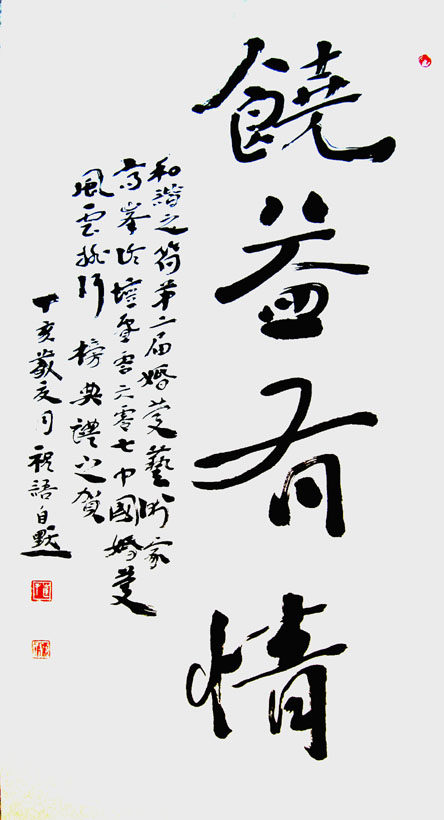 饒益有情
和諧之 第二屆婚慶藝術家
高峯論壇暨 零七中國婚慶
風雲排行榜典禮之賀
丁亥歲夏月 語自默